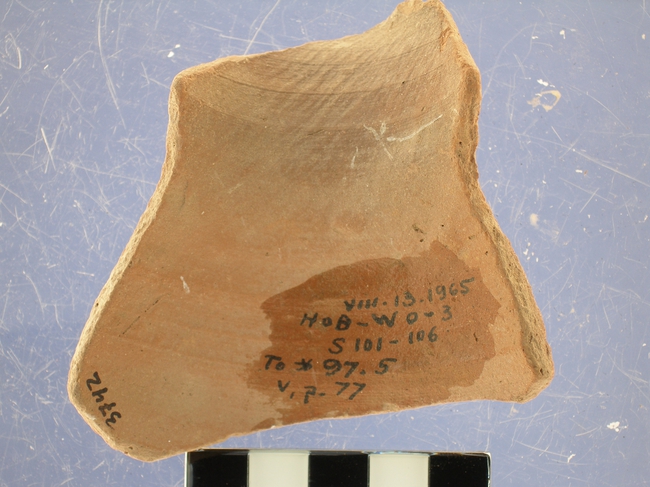 VIII-13.1965
HOB-W O-3
S 101-106
To * 97.5
V, p. 77
3742